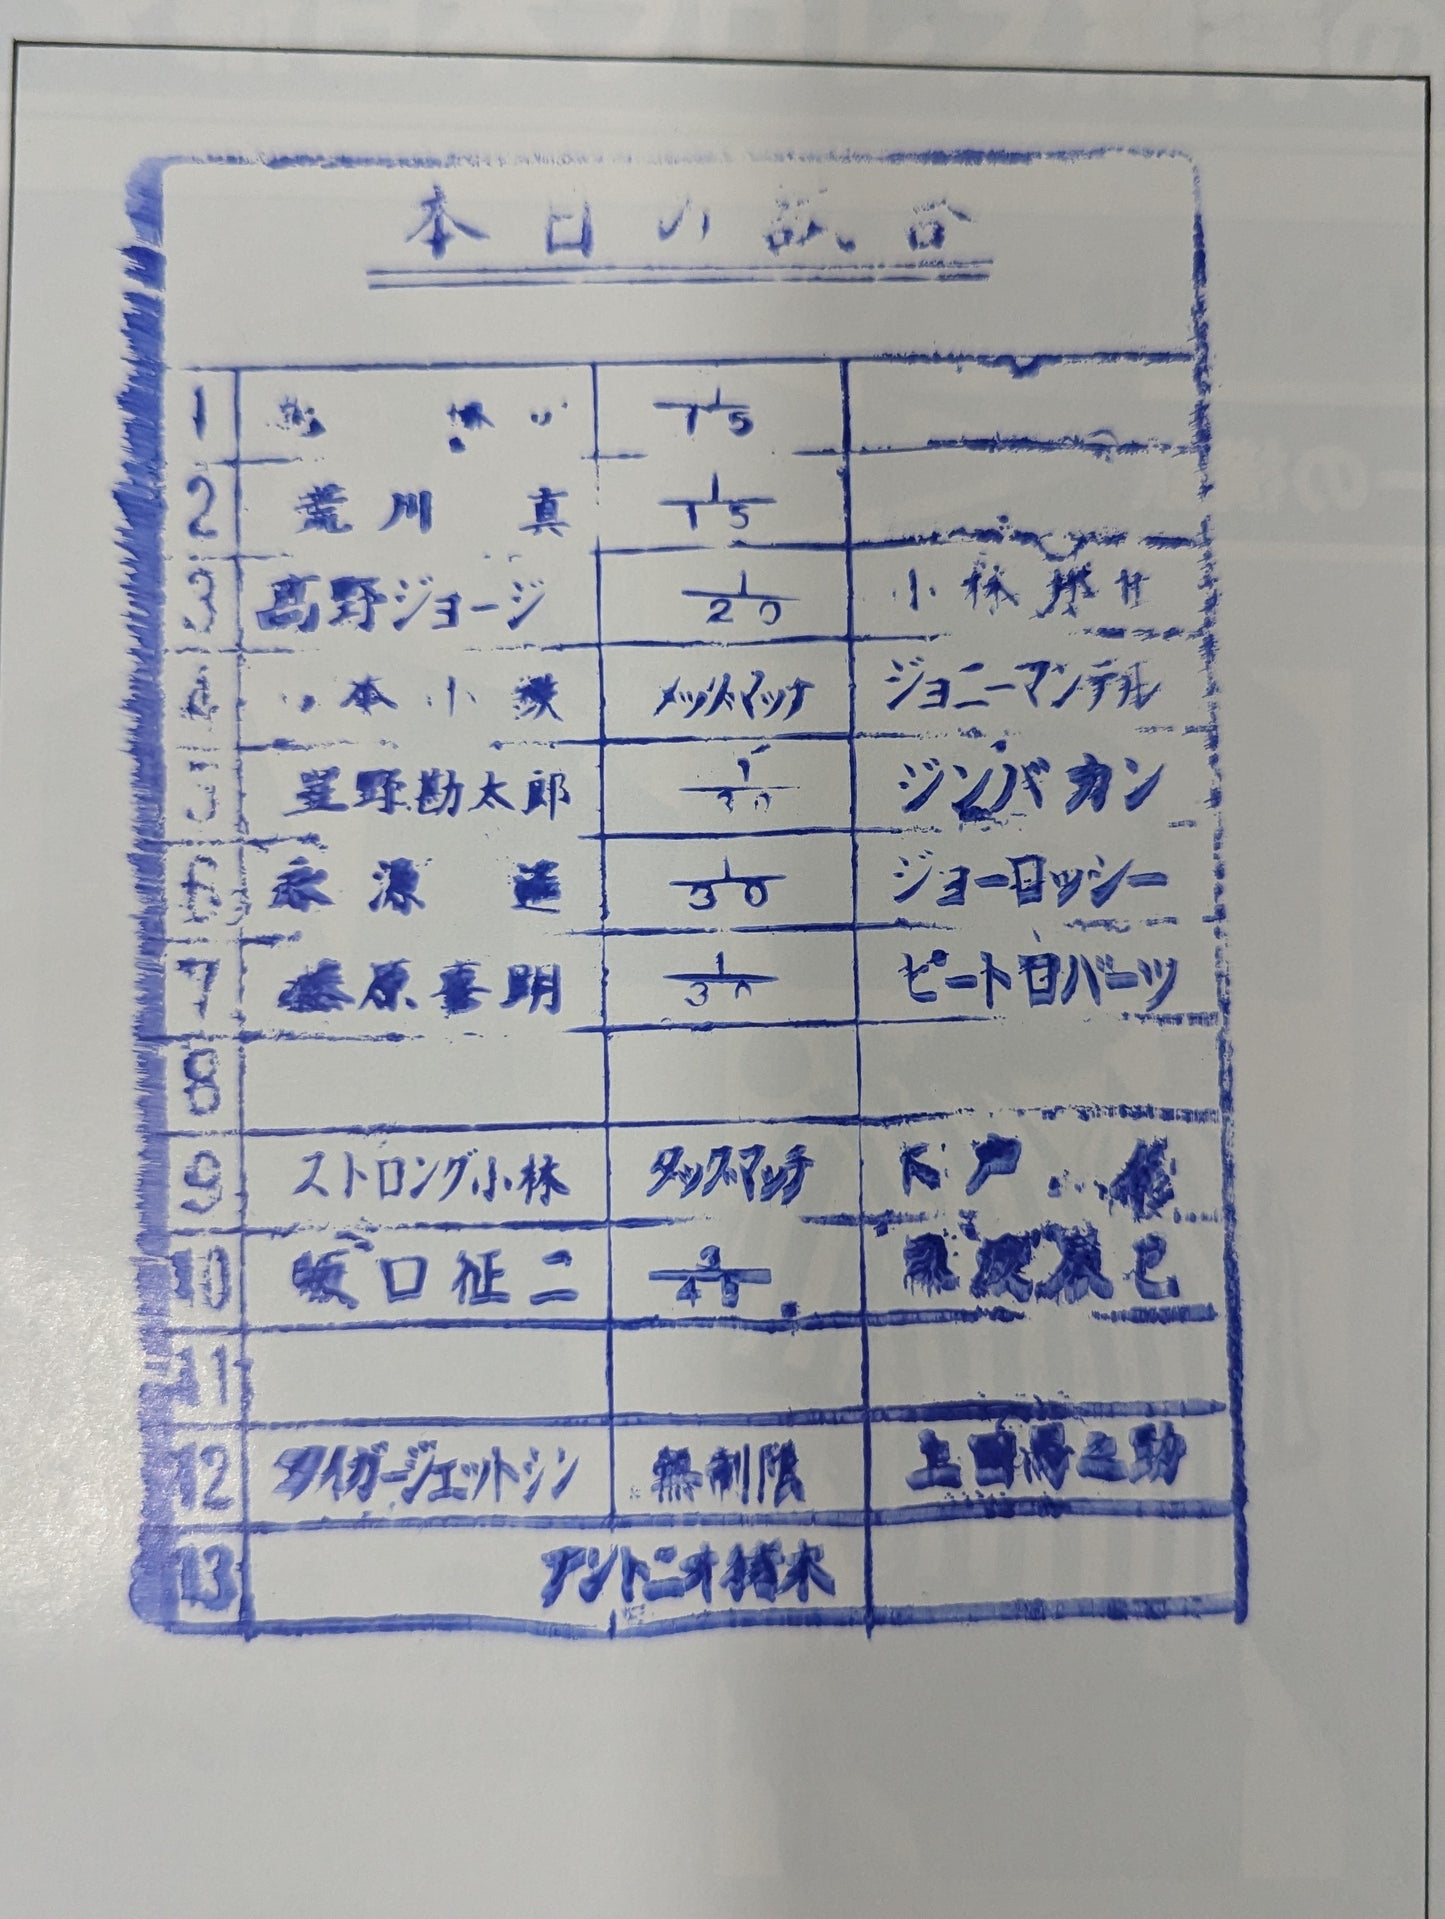 本日の試合
1 1/15
2 荒川真 1/15
3 髙野ジョージ 1/20 小林邦
4 本小鉄 タッグマッチ ジョニーマンテル
5 星野勘太郎 1/30 ジンバカン
6 永源遥 1/30 ジョーロッシー
7 藤原喜明 1/30 ピートロバーツ
8
9 ストロング小林 タッグマッチ 木戸修
10 坂口征二 3/45 藤波辰巳
11
12 タイガージェットシン 無制限 上田馬之助
13 アントニオ猪木